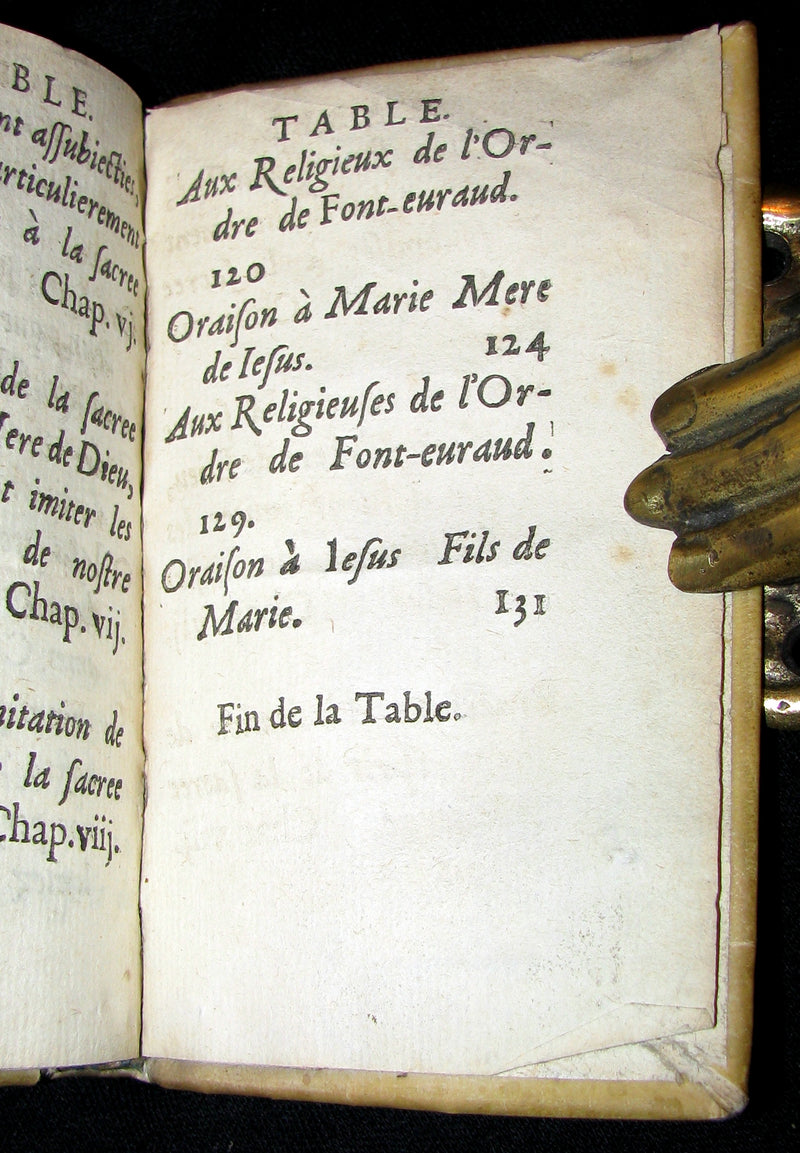 BLE.
nt aſſubiecties,
articulierement
à la ſacree
Chap. vj.
de la ſacree
Mere de Dieu,
t imiter les
de noſtre
Chap. vij.
mitation de
la ſacree
Chap. viij.
TABLE.
Aux Religieux de l'Or-
dre de Font-euraud.
120
Oraiſon à Marie Mere
de Ieſus. 124
Aux Religieuſes de l'Or-
dre de Font-euraud.
129.
Oraiſon à Ieſus Fils de
Marie. 131
Fin de la Table.